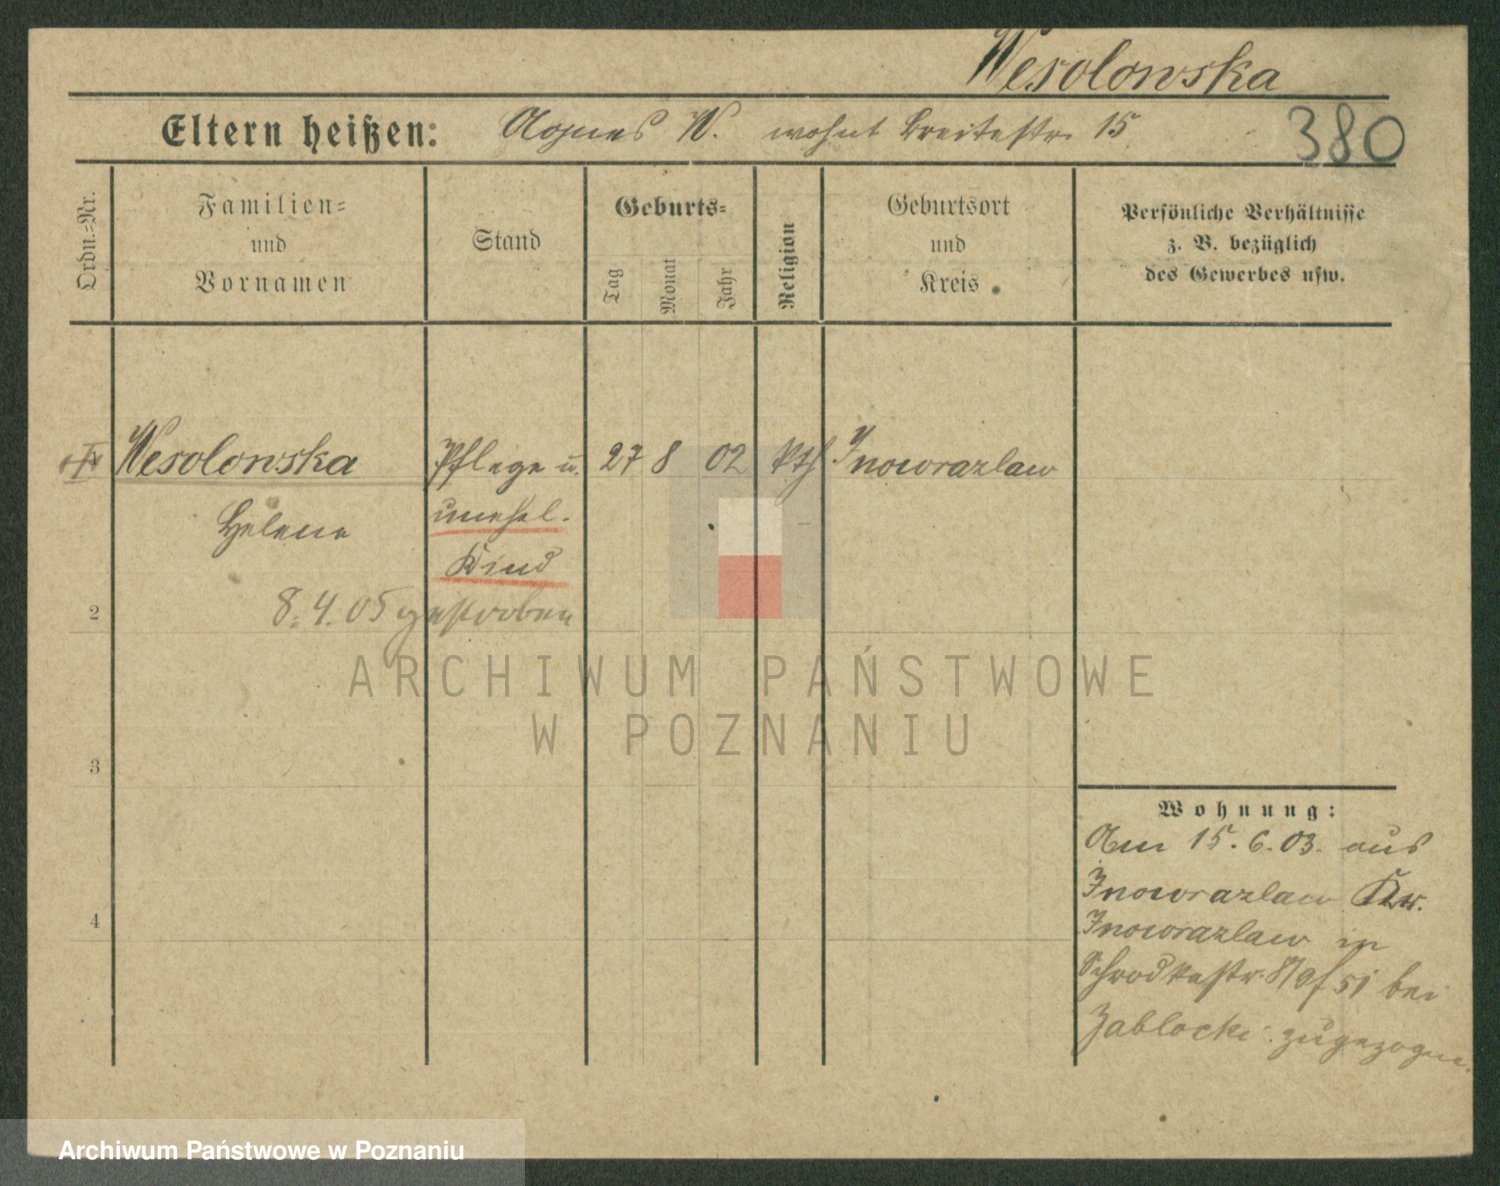 Wesolowska
Eltern heißen: Agnes W. wohnt Breitestr. 15
380
Ordn.-Nr.
Familien-
und
Vornamen
Stand
Geburts-
Tag
Monat
Jahr
Religion
Geburtsort
und
Kreis
Persönliche Verhältnisse
z. B. bezüglich
des Gewerbes usw.
Wesolowska Pflege u. 27 8 02 kth Inowrazlaw
Helene unehel.
Kind
8.4.05 gestorben
2
ARCHIWUM PAŃSTWOWE
W POZNANIU
3
Wohnung:
Am 15.6.03. aus
Inowrazlaw Kr.
4
Inowrazlaw in
Schrodkastr. bei
Zablocki zugezogen.
Archiwum Państwowe w Poznaniu